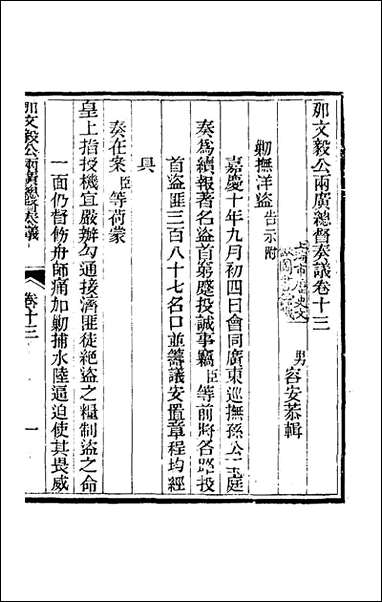 那文毅公兩廣總督奏議卷十三
男
容安恭輯
勦撫洋盜告示附
嘉慶十年九月初四日會同廣東巡撫孫公玉庭
奏爲續報著名盜首窮蹙投誠事竊臣等前將各路投
首盜匪三百八十七名口並籌議安置章程均經
具
奏在案臣等荷蒙
皇上指授機宜嚴辦勾通接濟匪徒絕盜之糧制盜之命
一面仍督飭舟師痛加勦捕水陸逼迫使其畏威
那文毅公兩廣總督奏議
卷十三
一